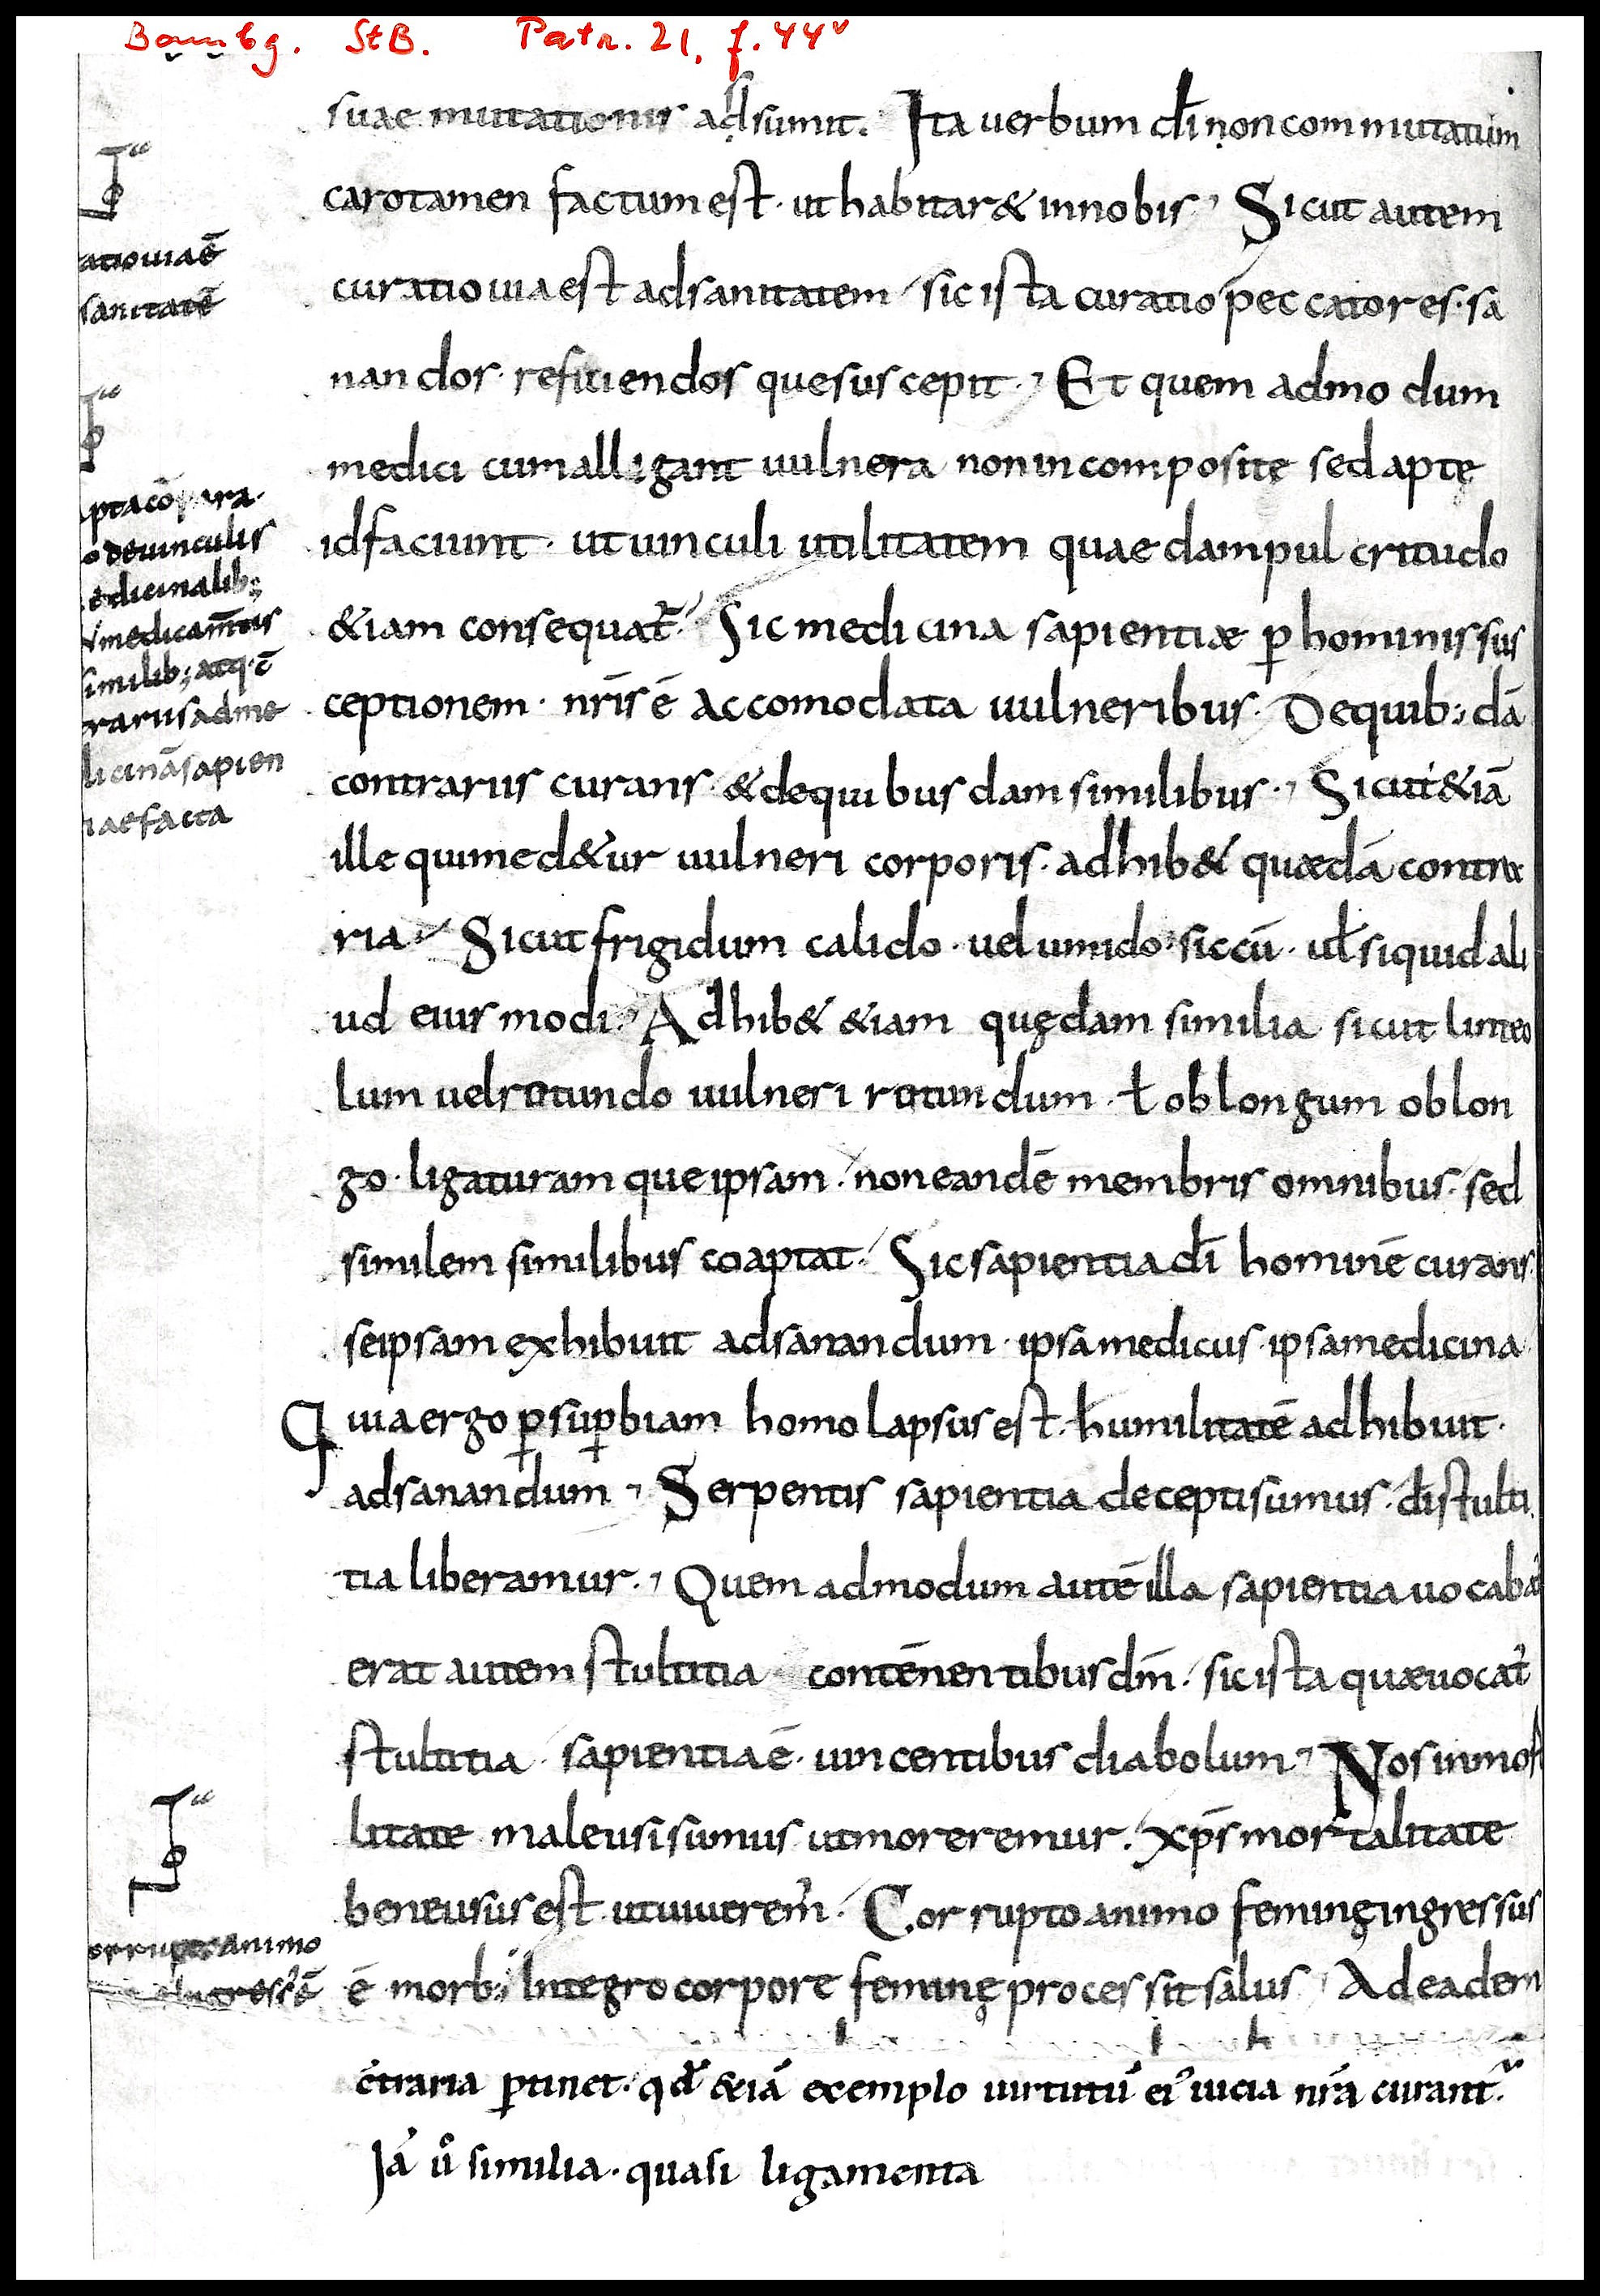 Bambg. StB. Patr. 21, f. 44v
suae mutationis adsumit. Ita uerbum dī non commutatum
caro tamen factum est· ut habitar& in nobis· Sicut autem
curatio uia est ad sanitatem sic ista curatio peccatores· sa
nandos· reficiendosque suscepit· Et quem ad modum
medici cum alligant uulnera non incomposite sed aptę
id faciunt· ut uinculi utilitatem quaedam pulcritudo
&iam consequat̄· Sic medicina sapientiæ ꝑ hominis sus
ceptionem· nr̄is ē accomodata uulneribus· De quib; dā
contrariis curans· & de quibusdam similibus· Sicut &iā
ille qui med&ur uulneri corporis· adhib& quædā contra
ria· Sicut frigidum calido· uel umido· siccū· ul̄ siquid ali
ud eius modi· Adhib& &iam quędam similia sicut linteo
lum uel rotundo uulneri rotundum· ł oblongum oblon
go· ligaturamque ipsam· non eandē membris omnibus· sed
similem similibus coaptat· Sic sapientia dī hominē curans·
se ipsam exhibuit ad sanandum· ipsa medicus· ipsa medicina·
Quia ergo ꝑ suꝑbiam homo lapsus est· humilitatē adhibuit·
ad sanandum· Serpentis sapientia decepti sumus· dī stulti
tia liberamur· Quem ad modum autē illa sapientia uocaba
erat autem stultitia contēnentibus dm̄· sic ista quæ uocat̓
stultitia· sapientia ē· uincentibus diabolum· Nos inmor
litate male usi sumus ut moreremur· xp̄s mortalitate
bene usus est· ut uiuerem̓· Corrupto animo feminę ingressus
ē morb; Integro corpore feminę processit salus· Ad eadem
c̄traria ꝑtinet· qd̄ &iā exemplo uirtutū ei᾽ uicia nr̄a curant᾽
Iā ů similia· quasi ligamenta
atio uia ē
sanitatē
ptacō para
o de uinculis
edicinalib;
medicam̄tis
similib; atq· ē
rariis ad me
licinā sapien
iae facta
animo
ingress᾽ ē